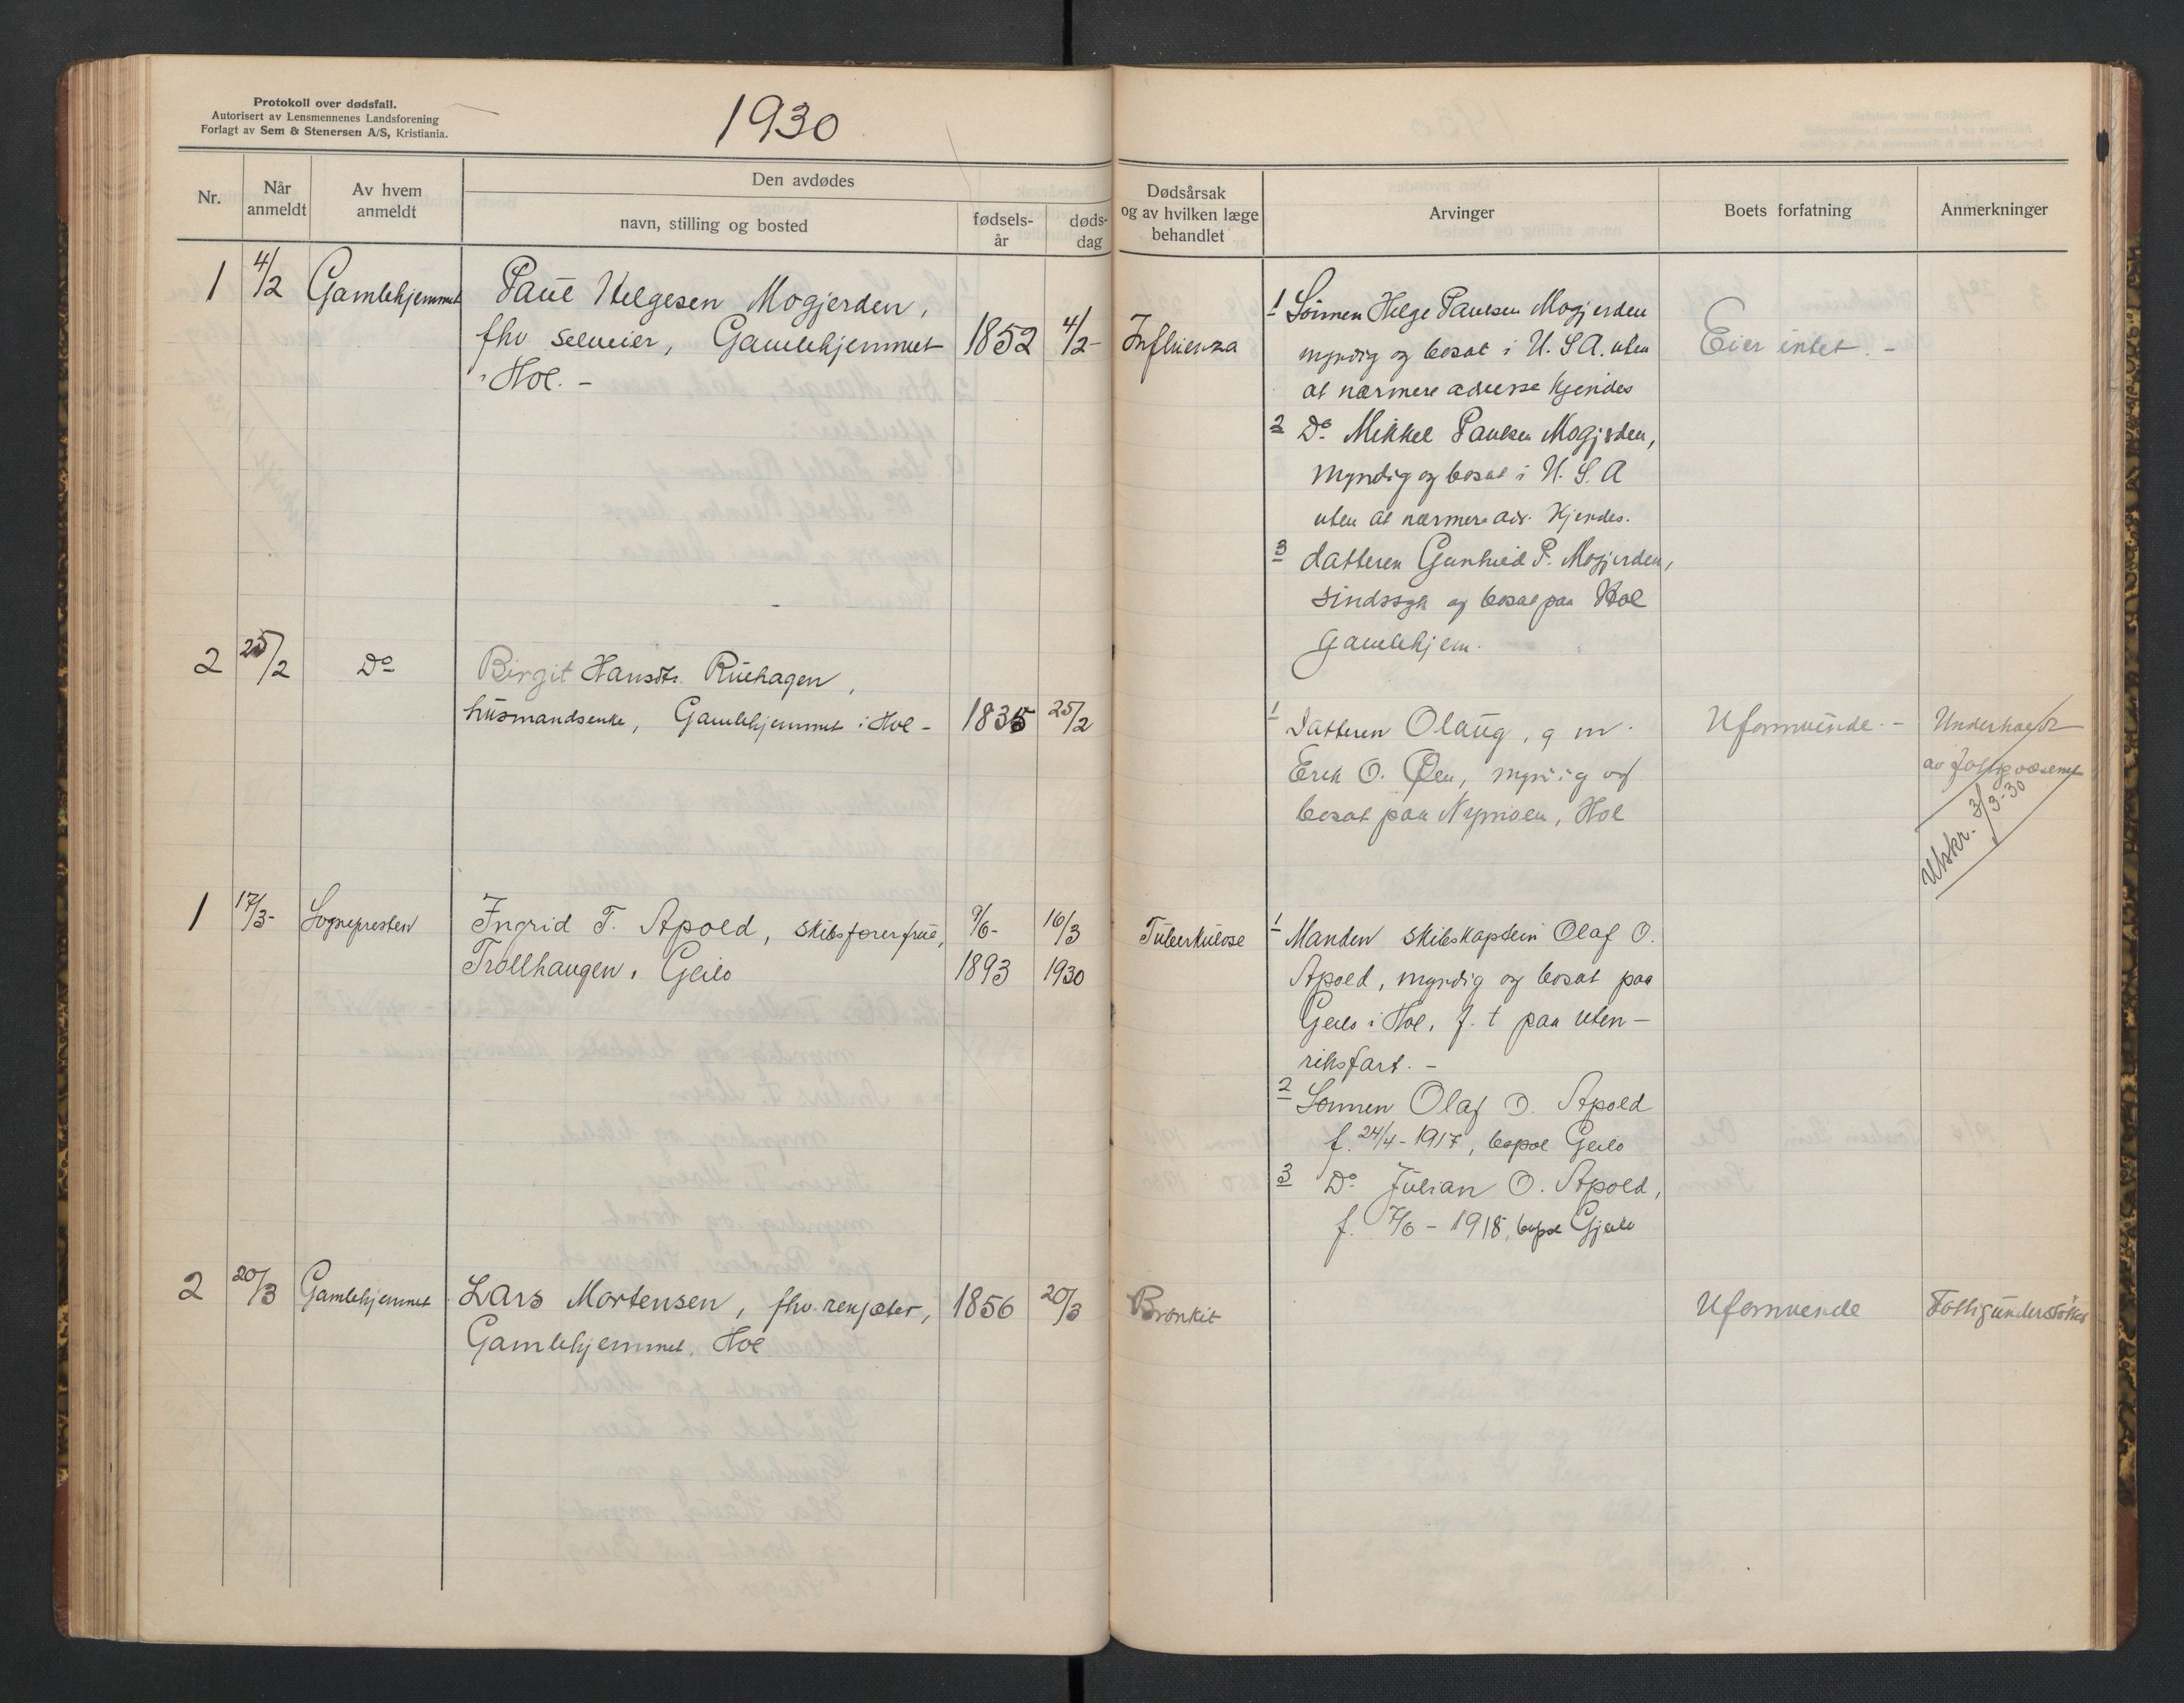 Protokoll over dødsfall.
Autorisert av Lensmennenes Landsforening
Forlagt av Sem & Stenersen A/S, Kristiania.
1930
Nr.
Når
anmeldt
Av hvem
anmeldt
Den avdødes
navn, stilling og bosted
fødsels-
år
døds-
dag
Dødsårsak
og av hvilken læge
behandlet
Arvinger
Boets forfatning
Anmerkninger
1 4/2 Gamlehjemmet Paul Helgesen Mogjerden,
fhv selveier, Gamlehjemmet 1852 4/2- Influenza
i Hol. -
1 Sönnen Helge Paulsen Mogjerden
myndig og bosat i U. S A. uten
at nærmere adresse kjendes
Eier intet. -
2 Do Mikkel Paulsen Mogjerden,
myndig og bosat i U. S. A
uten at nærmere adr. kjendes.
3 datteren Gunhild P. Mogjerden,
sindssyk og bosat paa Hol
Gamlehjem.
2 25/2 Do Birgit Hansdtr. Ruehagen,
husmandsenke, Gamlehjemmet i Hol - 1835 25/2
1 Datteren Olaug, g m.
Erik O. Øen, myndig og
bosat paa Nymoen, Hol
Uformuende. -
Underholdt
av fattigvæsenet
Utskr. 3/3-30
1 17/3- Sognepresten Ingrid T. Apold, skibsførerfrue, 9/6- 16/3 Tuberkulose
Trollhaugen, Geilo 1893 1930
1 Manden skibskaptein Olaf O.
Apold, myndig og bosat paa
Geilo i Hol, f. t paa uten-
riksfart. -
2 Sønnen Olaf O. Apold
f. 24/4 - 1917, bopel Geilo
3 Do Julian O. Apold,
f. 7/6 - 1918, bopel Gjeilo
2 20/3 Gamlehjemmet Lars Mortensen, fhv. rengjæter, 1856 20/3 Bronkit
Gamlehjemmet, Hol
Uformuende
Fattigunderstøttet